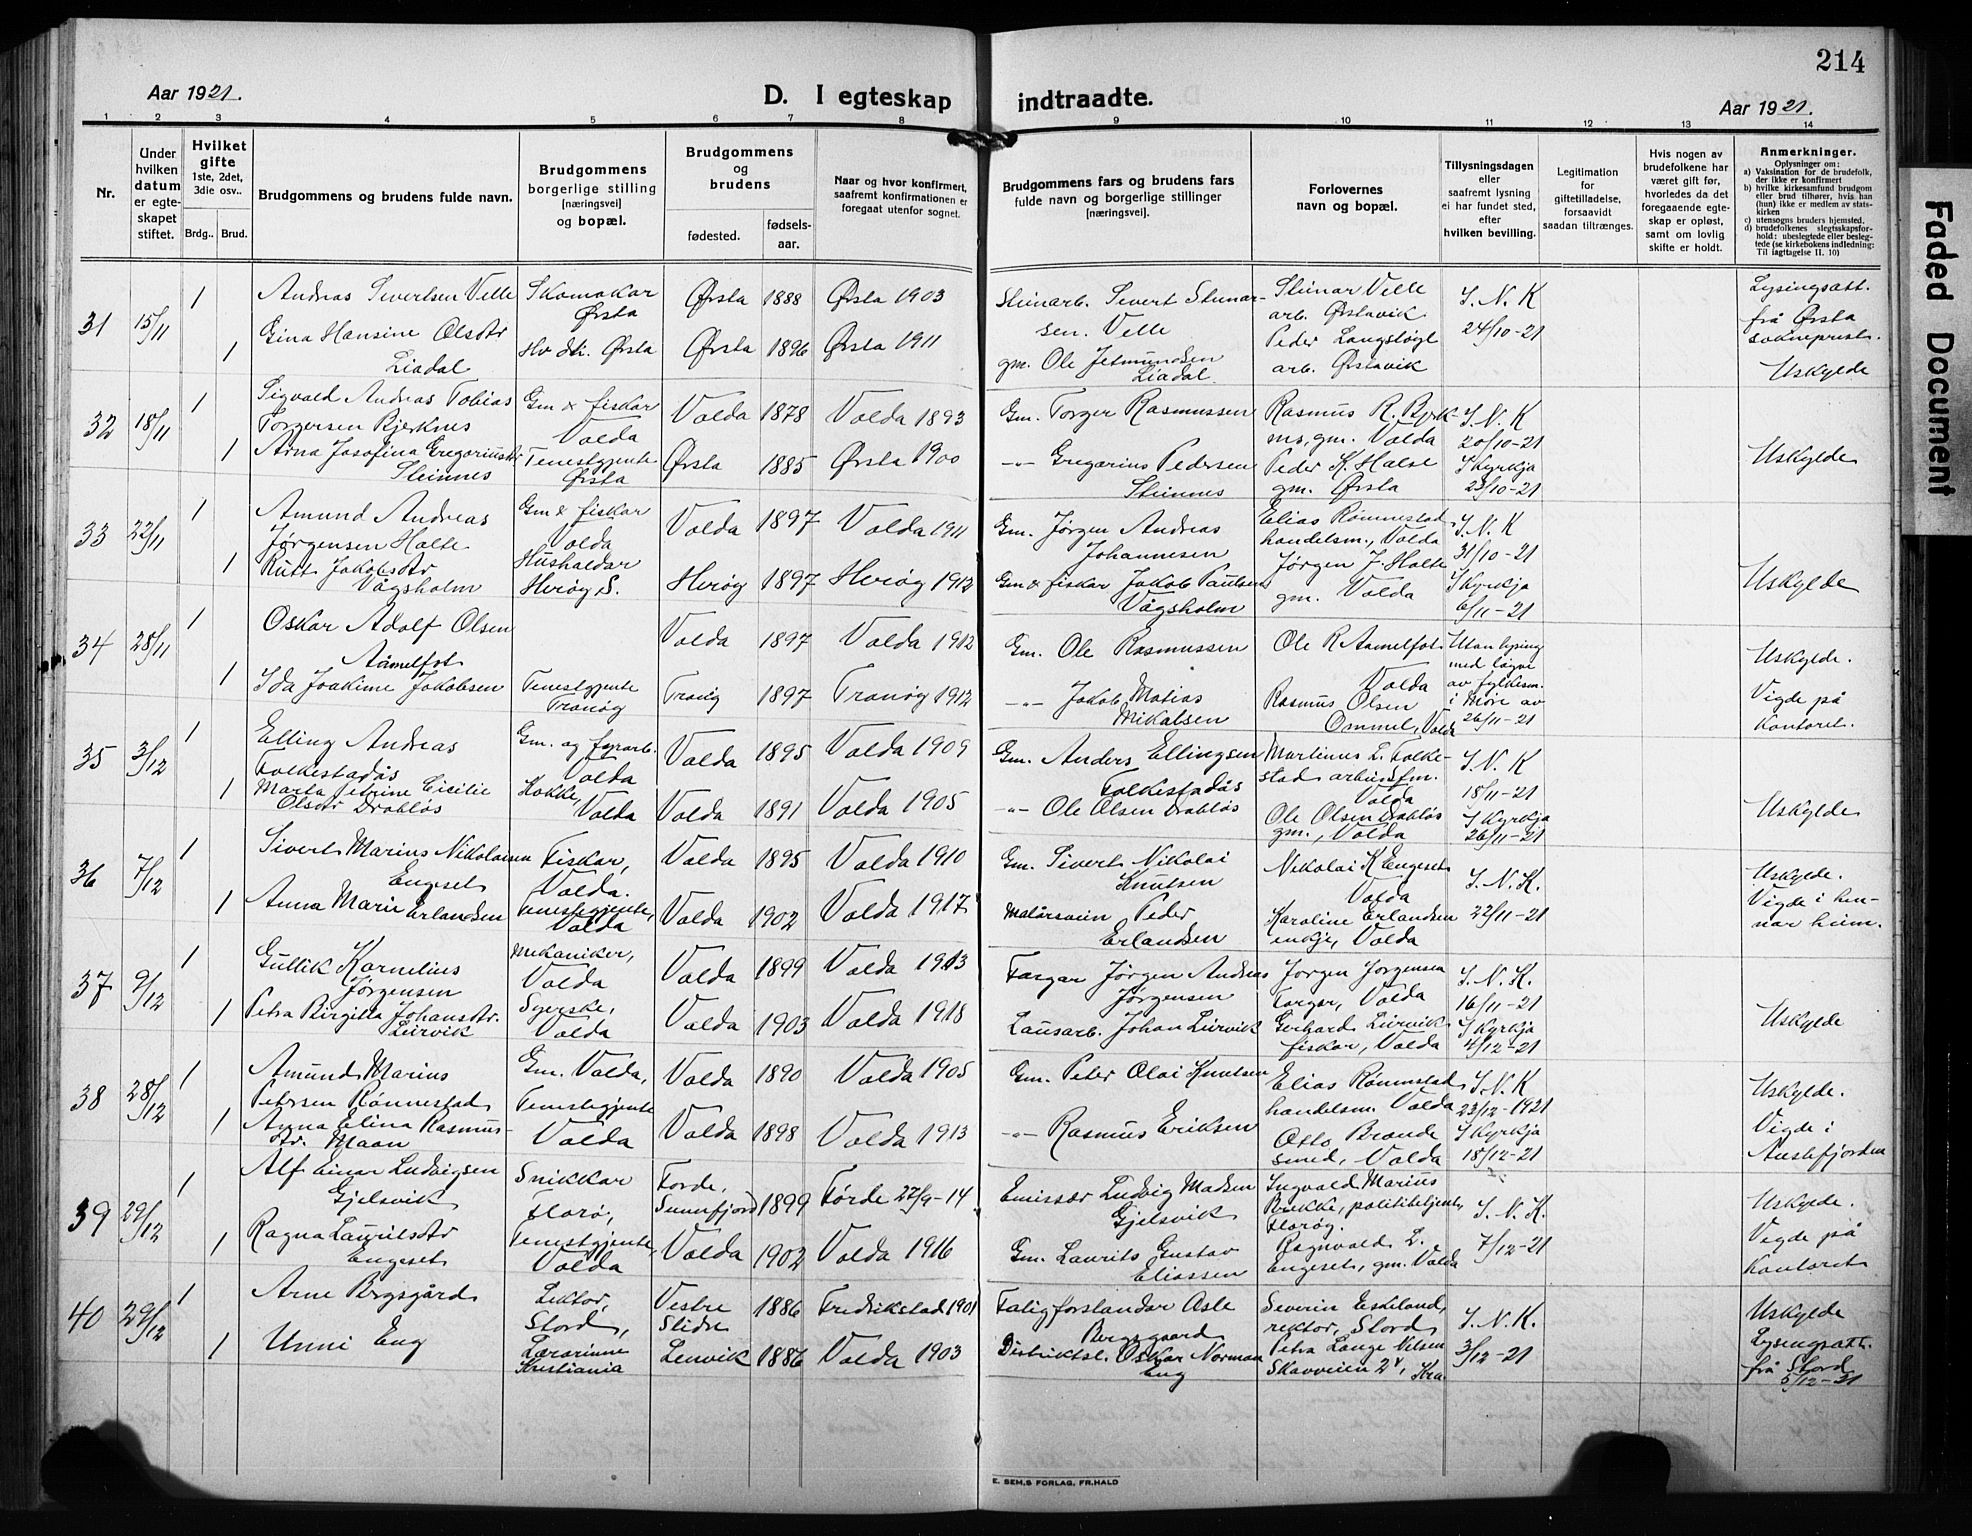 214
Aar 1921.
D. I egteskap indtraadte.
Aar 1921.
1 2 3 4 5 6 7 8 9 10 11 12 13 14
Nr.
Under hvilken datum er egteskapet stiftet.
Hvilket gifte 1ste, 2det, 3die osv..
Brdg.. Brud.
Brudgommens og brudens fulde navn.
Brudgommens borgerlige stilling [næringsvei] og bopæl.
Brudgommens og brudens
fødested. fødselsaar.
Naar og hvor konfirmert, saafremt konfirmationen er foregaat utenfor sognet.
Brudgommens fars og brudens fars fulde navn og borgerlige stillinger [næringsvei].
Forlovernes navn og bopæl.
Tillysningsdagen eller saafremt lysning ei har fundet sted, efter hvilken bevilling.
Legitimation for giftetilladelse, forsaavidt saadan tiltrænges.
Hvis nogen av brudefolkene har været gift før, hvorledes da det foregaaende egteskap er opløst, samt om lovlig skifte er holdt.
Anmerkninger.
Oplysninger om:
a) Vaksination for de brudefolk, der ikke er konfirmert
b) hvilke kirkesamfund brudgom eller brud tilhører, hvis han (hun) ikke er medlem av statskirken
c) utensogns bruders hjemsted.
d) brudefolkenes slegtsskapsforhold: ubeslegtede eller beslegtede (se kirkebokens indledning: Til iagttagelse II. 10)
31 15/11 1 Andreas Sivertsen Velle Skomakar Ørsta Ørsta 1888 Ørsta 1903 Steinarb. Sivert Steinarsen. Velle Steinar Velle arb. Ørstavik I. N. K 24/10-21 Lysingsatt. frå Ørsta sokneprest.
1 Gina Hansine Olsdtr Liadal Hv dtr. Ørsta Ørsta 1896 Ørsta 1911 gm. Ole Jetmundsen Liadal Peder Langsløgt arb. Ørstavik Uskylde
32 18/11 1 Sigvald Andreas Tobias Torgersen Bjerknes Gm & fiskar Volda Volda 1878 Volda 1893 Gm. Torger Rasmussen Rasmus R. Bjrknes, gm. Volda I. N. K 20/10-21
1 Arna Josefina Gregoriusdtr Steinnes Tenestgjente Ørsta Ørsta 1885 Ørsta 1900 -"- Gregorius Pedersen Steinnes Peder K. Halse gm. Ørsta I Kyrkja 23/10-21 Uskylde
33 22/11 1 Amund Andreas Jørgensen Holte Gm & fiskar Volda Volda 1897 Volda 1911 Gm. Jørgen Andreas Johannesen Elias Rønnestad handelsm., Volda I. N. K 31/10-21
1 Rutt Jakobsdtr Vågsholm Husholdar Herøy S. Herøy 1897 Herøy 1912 Gm & fiskar Jakob Paulsen Vågsholm Jørgen J. Holte gm. Volda I Kyrkja 6/11-21 Uskylde
34 28/11 1 Oskar Adolf Olsen Åmelfot Volda 1897 Volda 1912 Gm. Ole Rasmussen Ole R Aamelfot Volda Utan lysing med løyve av fylkesm. i Møre av 26/11-21 Uskylde.
1 Ida Joakime Jakobsen Tenestgjente Tranøy Tranøy 1897 Tranøy 1912 -"- Jakob Matias Mikalsen Rasmus Olsen Ommel, Volda Vigde på kontoret.
35 3/12 1 Elling Andreas Folkestadås Gm. og fyrarb. Volda Volda 1895 Volda 1909 Gm. Anders Ellingsen Folkestadås Martinus L. Folkestad arbeidsfm. Volda I. N. K 18/11-21
1 Marta Petrine Cicilie Olsdtr Drabløs Kokke, Volda Volda 1891 Volda 1905 -"- Ole Olsen Drabløs Ole Olsen Drabløs gm., Volda I Kyrkja 26/11-21 Uskylde
36 7/12 1 Sivert Marius Nikolaisen Engeset Fiskar, Volda. Volda 1895 Volda 1910 Gm. Sivert Nikolai Knutsen Nikolai K Engeset Volda I. N. K. 22/11-21 Uskylde.
1 Anna Marie Erlandsen Tenestgjente, Volda Volda 1902 Volda 1917 Målarsvein Peder Erlandsen Karoline Erlandsen enkje, Volda Vigde i hennar heim.
37 9/12 1 Gullik Kornelius Jørgensen Mekaniker, Volda Volda 1899 Volda 1913 Fargar Jørgen Andreas Jørgensen Jørgen Jørgensen Farger, Volda I. N. K. 16/11-21
1 Petra Birgitta Johansdtr. Leirvik Syerske, Volda Volda 1903 Volda 1918 Lausarb. Johan Leirvik Gerhard Leirvik fiskar, Volda I Kyrkja 4/12-21 Uskylde
38 28/12 1 Amund Marius Petersen Rønnestad Gm. Volda, Volda 1890 Volda 1905 Gm. Peter Olai Knutsen Elias Rønnestad handelsm. Volda I. N. K 23/12-1921 Uskylde.
1 Anna Elina Rasmusdtr. Maan Tenestgjente Volda Volda 1898 Volda 1913 -"- Rasmus Eriksen Otto Brande smed, Volda I Kyrkja 18/12-21 Vigde i Austefjorden
39 29/12 1 Alf Einar Ludvigsen Gjelsvik Snikkar Florø, Førde, Sunnfjord 1899 Førde 27/9-14 Emissær Ludvig Madsen Gjelsvik Ingvald Marius Brekke, politibetjent, Florøy. I. N. K. 7/12-21 Uskylde.
1 Ragna Lauritsdtr Engeset Tenestgjente, Volda Volda 1902 Volda 1916 Gm. Laurits Gustav Eliassen Ragnvald L. Engeset, gm. Volda Vigde på kontoret
40 29/12 1 Arne Bergsgård Lektor, Stord, Vestre Slidre 1886 Fredrikstad 1901 Fatigforstandar Asle Bergsgaard Severin Eskeland, rektor, Stord I. N. K. 3/12-21 Uskylde
1 Unni Eng Lærarinne Kristiania Lenvik 1886 Volda 1903 Distriktsl. Oskar Norman Eng Petra Lange Nilsen Skovveien 2, Kra Lysingsatt. frå Stord 5/12-21
E. SEM,S FORLAG, FR.HALD
Faded Document